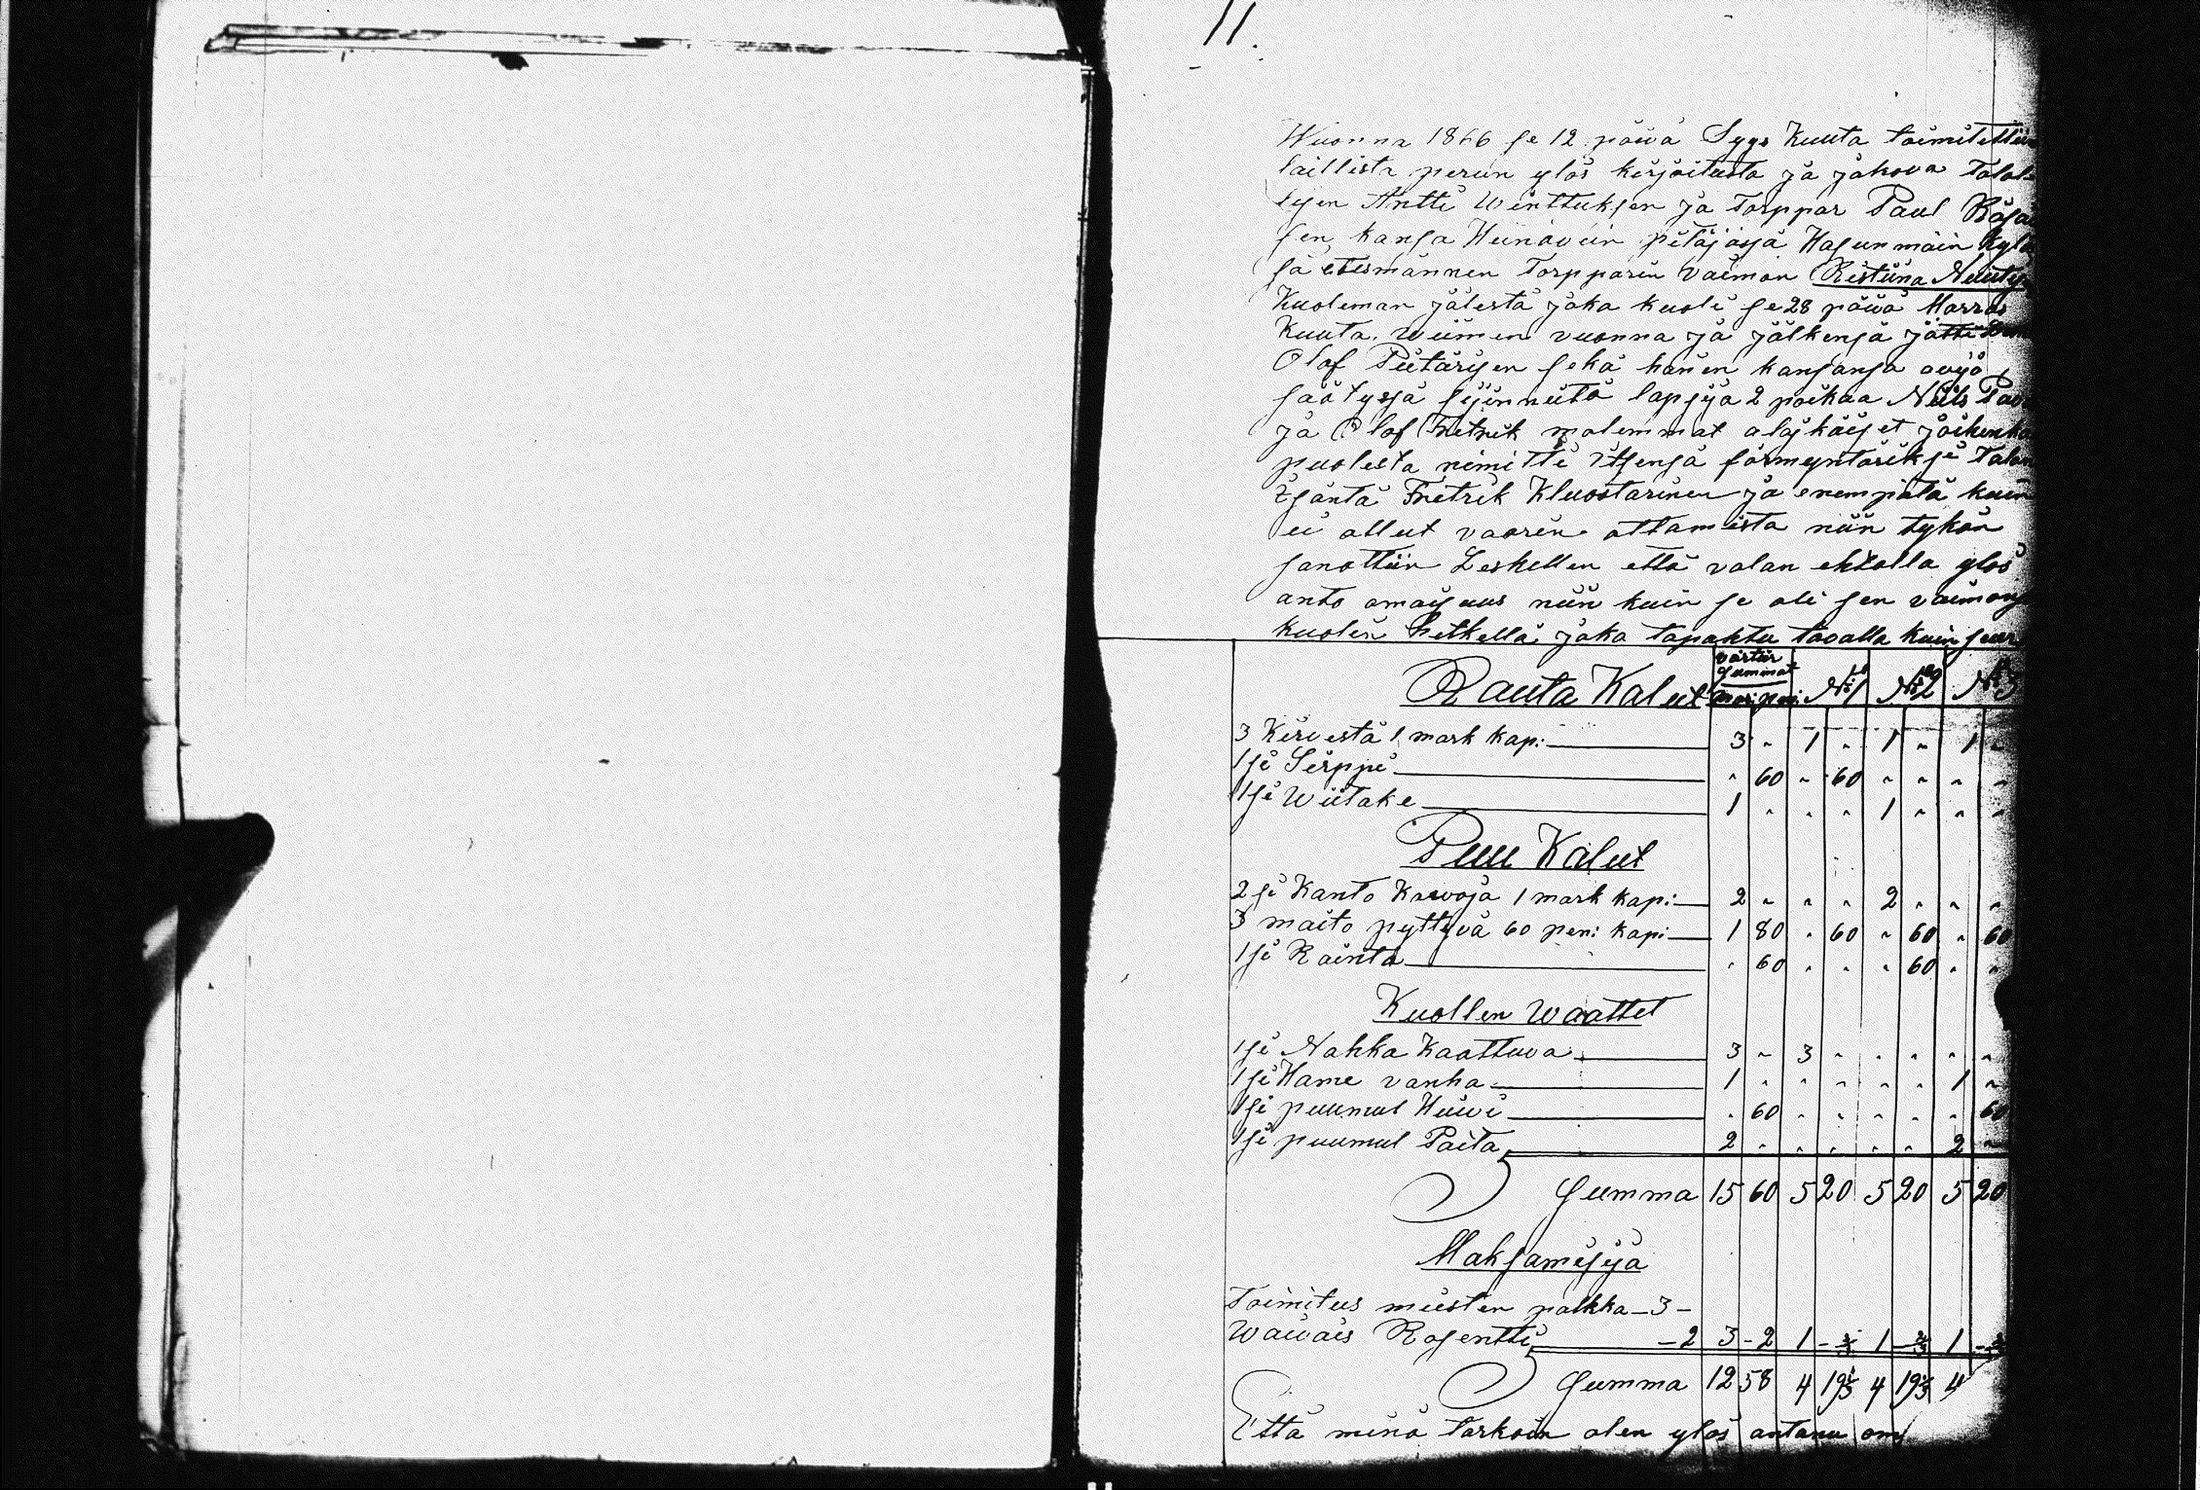 11.
Wuonna 1866 se 12 päiwä Syys Kuuta toimitettiin
laillista perun ylös kirjoitusta ja jakova Talol-
lisen Antti Winttuksen ja Torppar Paul Räsäi
sen kansa Heinävein pitäjäsjä Hasunmäin kylä
sä etesmännen Torpparin vaimon Ristiina
Kuoleman jälestä joka kuoli se 28 päiwä Marras
Kuuta. wiimen vuonna ja jälkensä jätti
Olof Pietärisen sekä hänen kansansa aviö
säätysjä sijinneitä lapsija 2 poikaa Niils
ja Olof Fretrik molemmat alajkäiset joihenka
puolesta nimitti itsensä förmyntäriksi Talon
isäntä Fretrik Kluostarinen ja enempätä kuin
ei ollut vaarin ottamista niin tykön
sanottiin Leskellen että valan ehtolla ylös
anto omaisuus niin kuin se oli sen vaimon
kuolin hetkellä joka tapahtu tavalla kuin seur
Rauta Kalut värtiir summat mar: pen: No 1 No 2 No 3
3 Kirvestä 1 mark kap: 3 " 1 " 1 " 1 "
1 si Sirppi " 60 " 60 " " " "
1 si Wiitake 1 " " " 1 " " "
Puu Kalut
2 si Kanto Korvoja 1 mark kapi: 2 " " " 2 " " "
3 maito pyttyvä 60 pen: kapi 1 80 " 60 " 60 " 60
1 si Rainta " 60 " " " 60 " "
Kuollen waattet
1 si Nahka Kaattuva 3 " 3 " " " " "
1 si Hame vanha 1 " " " " " 1 "
1 si puumul Huivi " 60 " " " " " 60
1 si puumul Paita 2 " " " " " 2 "
Summa 15 60 5 20 5 20 5 20
Maksamisija
Toimitus miesten palkka - 3 -
Waiwais Rosentti - 2 3 - 2 1 - 2/3 1 - 2/3 1 - 2/3
Summa 12 58 4 19 1/3 4 19 1/3 4
Että minä tarkoin olen ylös antanu om